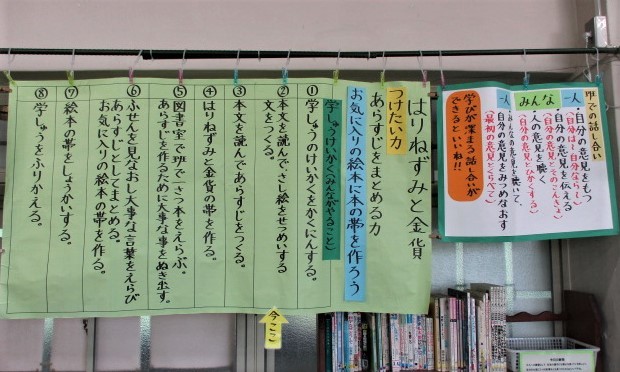 班での話し合い
一人
自分の意見をもつ
(自分は…自分なら…)
みんな
自分の意見を伝える
(自分の意見とそのこんきょ)
人の意見を聴く
(自分の意見とひかくする)
一人
みんなの意見を聴いて、
自分の意見をみつめなおす
(最初の意見とくらべて)
学びが深まる話し合いが
できるといいね!!
はりねずみと金貨
つけたい力
あらすじをまとめる力
お気に入りの絵本に本の帯を作ろう
学しゅうけいかく(みんながやること)
①学しゅうのけいかくをかくにんする。
②本文を読んで、さし絵をせつめいする
文をつくる。
③本文を読んであらすじをつくる。
④はりねずみと金貨の帯を作る。
⑤図書室で班で一さつ本をえらぶ。
あらすじを作るために大事な事をぬき出す。
⑥ふせんを見なおし大事な言葉をえらび
あらすじとしてまとめる。
お気に入りの絵本の帯を作る。
⑦絵本の帯をしょうかいする。
⑧学しゅうをふりかえる。
今ここ